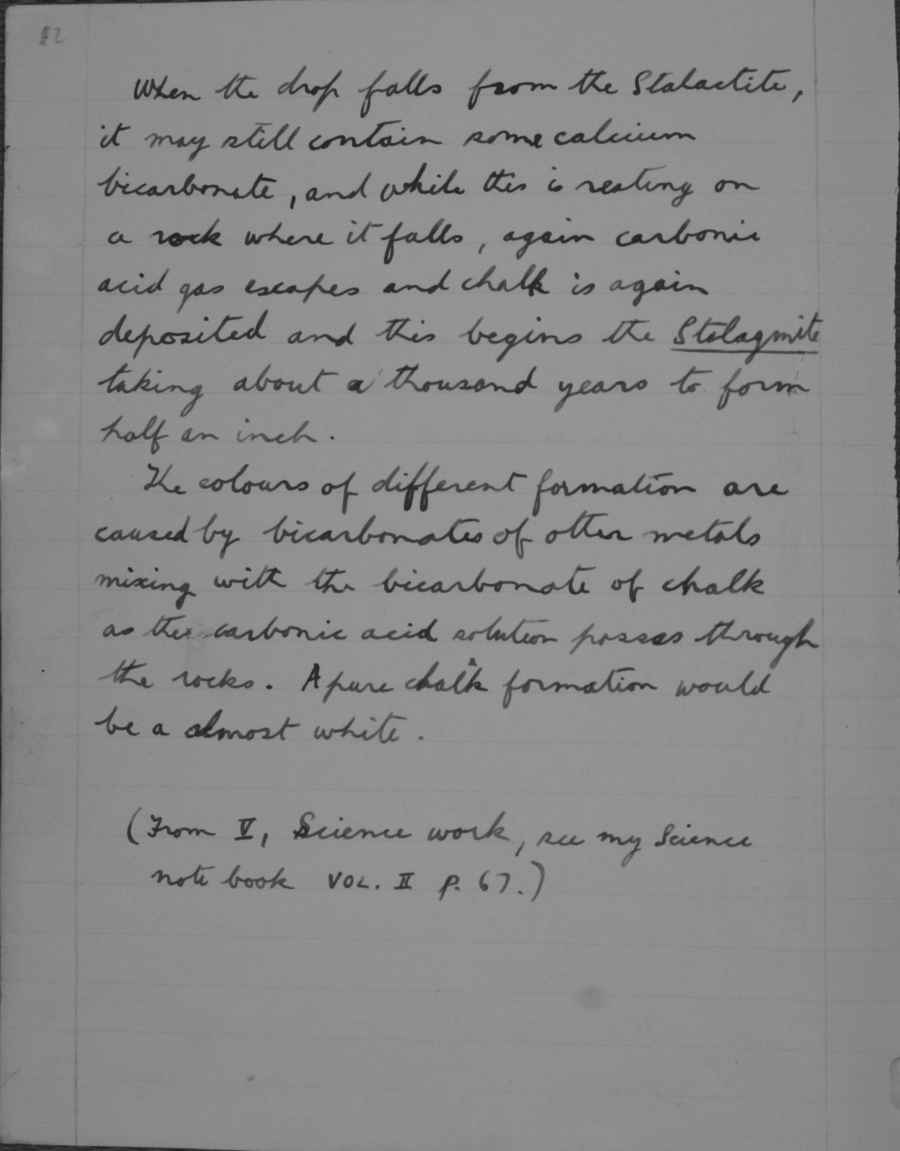 12
When the drop falls from the Stalactite,
it may still contain some calcium
bicarbonate, and while this is resting on
a rock where it falls, again carbonic
acid gas escapes and chalk is again
deposited and this begins the Stalagmite
taking about a thousand years to form
half an inch.
The colours of different formation are
caused by bicarbonates of other metals
mixing with the bicarbonate of chalk
as the carbonic acid solution passes through
the rocks. A pure chalk formation would
be a almost white.
(From V, Science work, see my Science
note book VOL. II p. 67.)